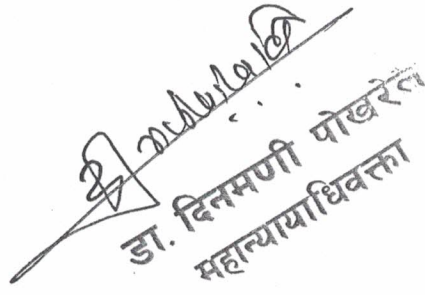 डा. दिनमणी पोखरेल
महान्यायाधिवक्ता